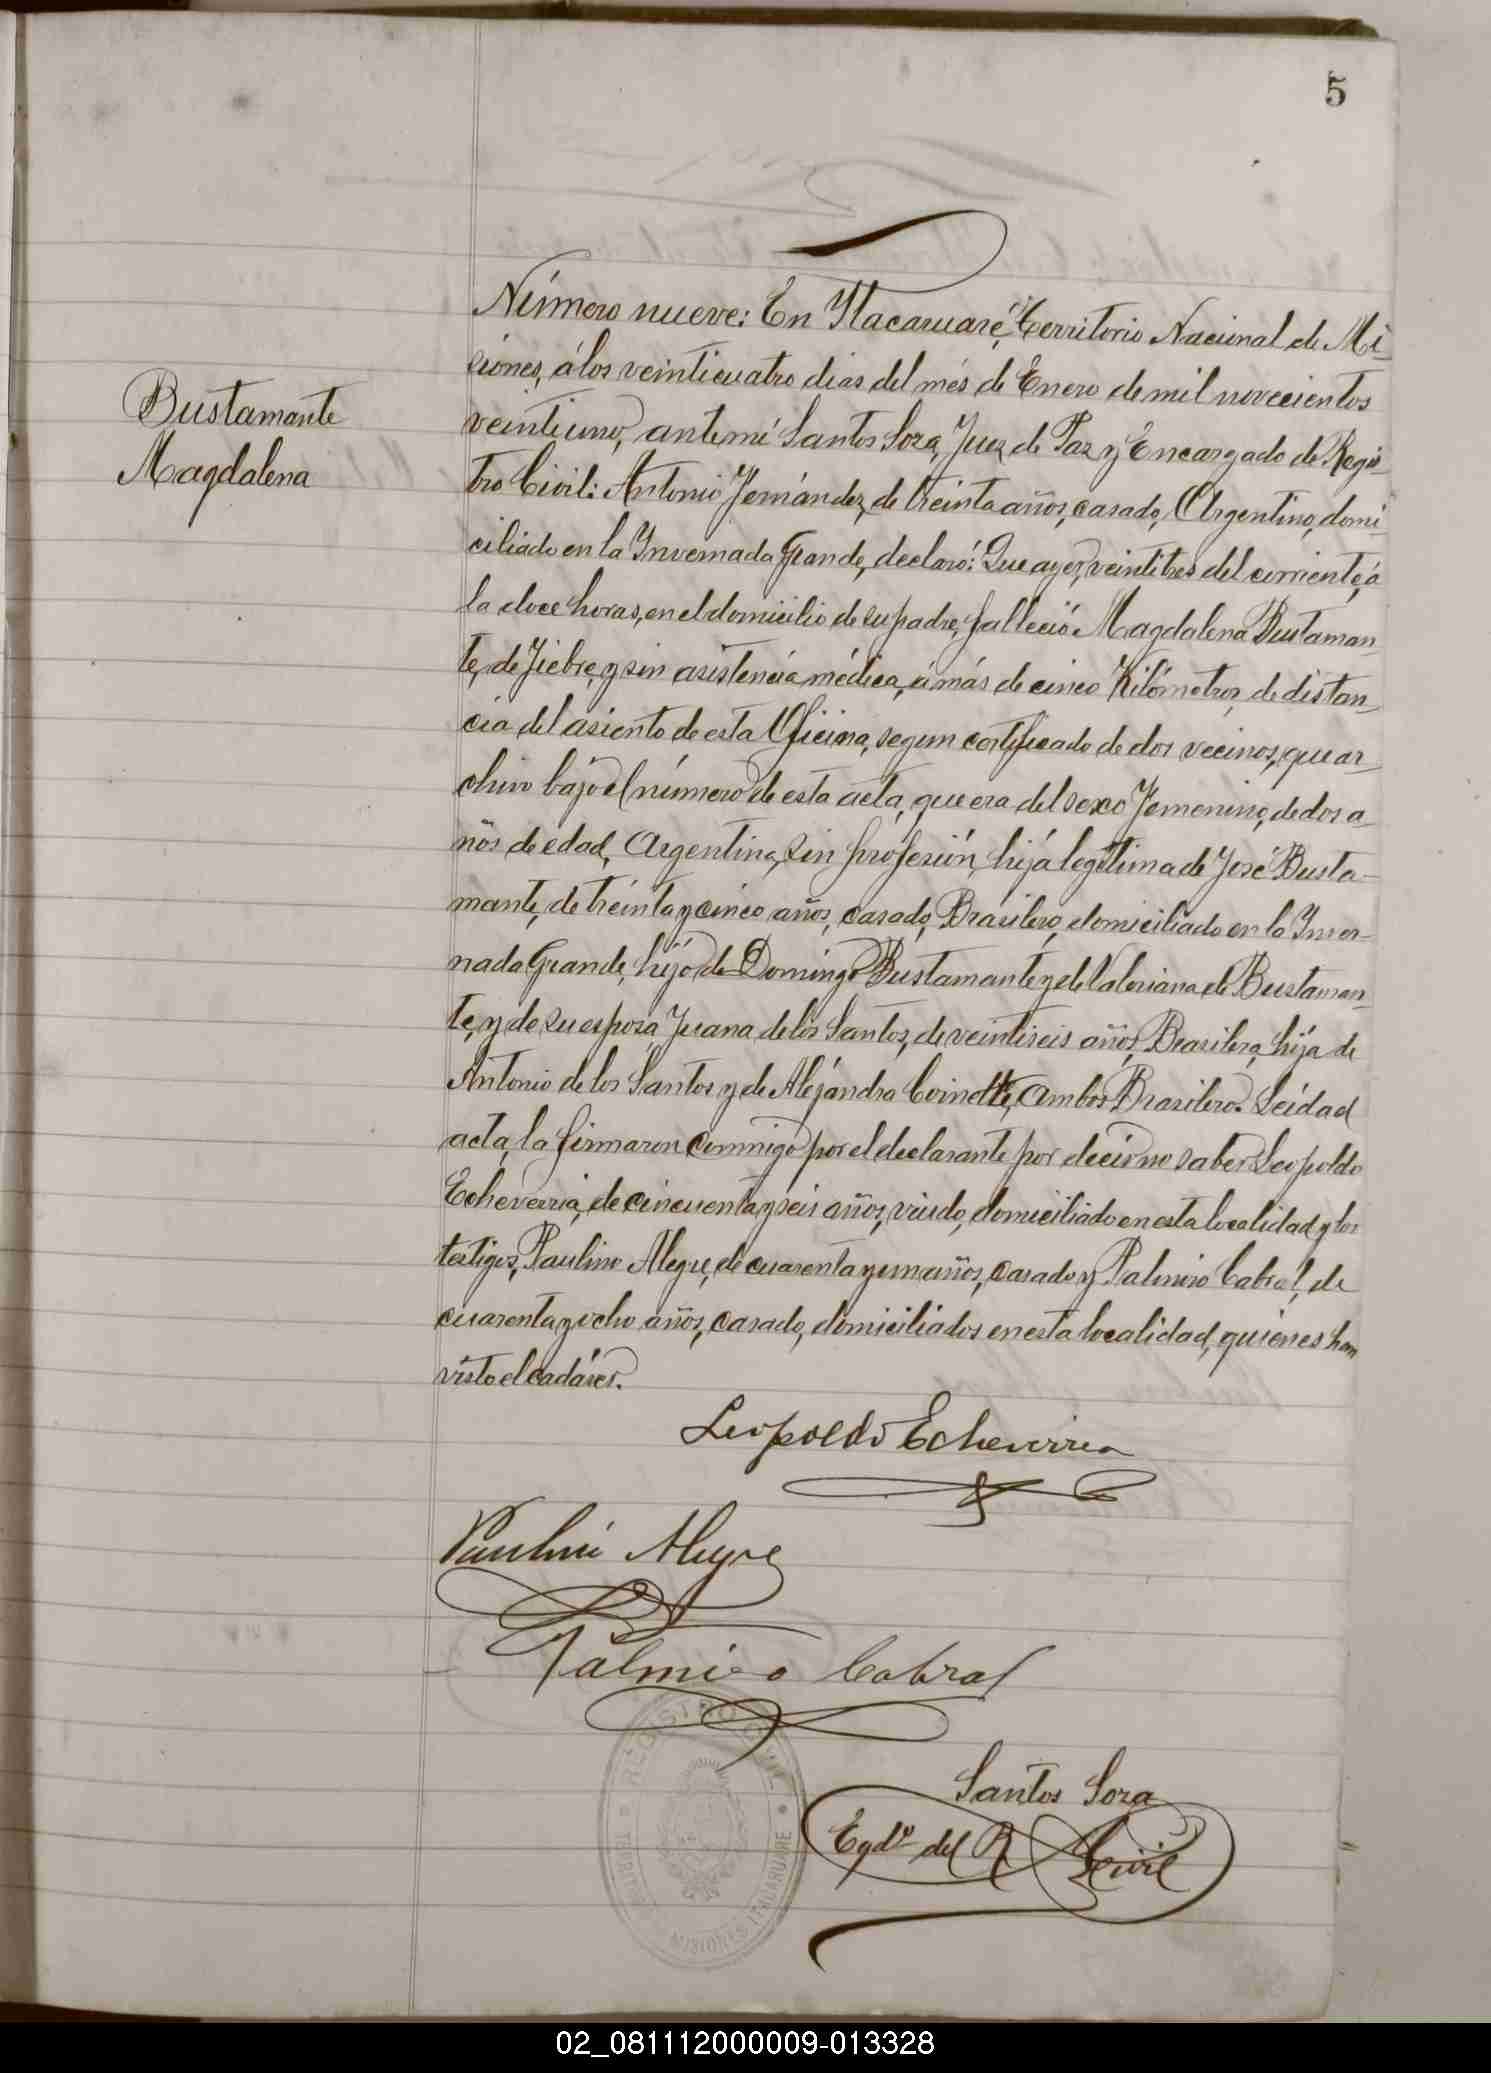 5
Bustamante
Magdalena
Número nueve: En Ytacaruaré, Territorio Nacional de Mi-
siones, á los veinticuatro dias del més de Enero de mil novecientos
veintiuno, ante mí Santos Soza, Juez de Paz y Encargado de Regis-
tro Civil: Antonio Fernández, de treinta años, casado, Argentino, domi-
ciliado en la Invernada Grande, declaró: Que ayer, veintitres del corriente, á
la doce horas, en el domicilio de su padre, falleció Magdalena Bustaman-
te, de Fiebre, y sin asistencia médica, á más de cinco Kilómetros, de distan-
cia del asiento de esta Oficina, segun certificado de dos vecinos, que ar-
chivo bajo el número de esta acta, que era del sexo Femenino, de dos a-
ños de edad, Argentina, sin profesión, hija legítima de José Busta-
mante, de treinta y cinco años, casado, Brasilero, domiciliado en la Inver-
nada Grande, hijo de Domingo Bustamante y de Valeriana de Bustaman-
te, y de su esposa Juana de los Santos, de veintiseis años, Brasilera, hija de
Antonio de los Santos y de Alejandra ambos Brasilero. Leída el
acta, la firmaron conmigo por el declarante por decir no saber Leopoldo
Echeverria, de cincuenta y seis años, viudo, domiciliado en esta localidad y los
testigos, Paulino Alegre, de cuarenta y un años, casado y Palmiro Cabral, de
cuarenta y ocho años, casado, domiciliados en esta localidad, quienes han
visto el cadáver.
Leopoldo Echeverria
Paulino Alegre
Palmiro Cabral
REGISTRO CIVIL
TERRITORIO MISIONES ITACARUARE
Santos Soza
Egdo del R Civil
02_081112000009-013328